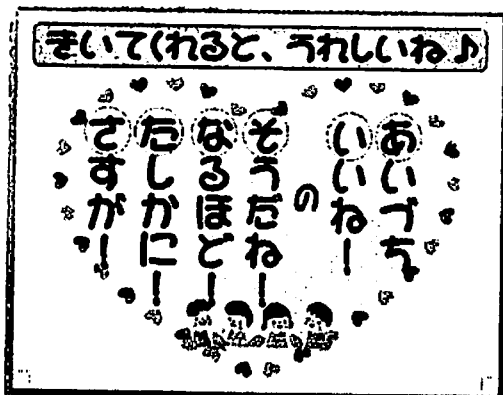 きいてくれると、うれしいね♪
あいづち
いいね！
の
そうだね！
なるほど！
たしかに！
さすが！